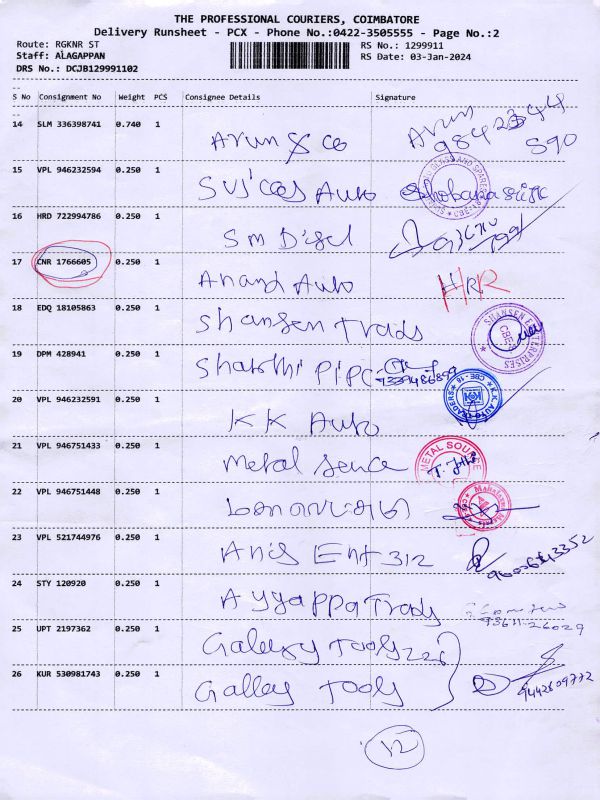 THE PROFESSIONAL COURIERS, COIMBATORE
Delivery Runsheet - PCX - Phone No.:0422-3505555 - Page No.:2
Route: RGKNR ST RS No.: 1299911
Staff: ALAGAPPAN RS Date: 03-Jan-2024
DRS No.: DCJB129991102
S No Consignment No Weight PCS Consignee Details Signature
14 SLM 336398741 0.740 1 Arun & co Arun
590
15 VPL 946232594 0.250 1 Auto
16 HRD 722994786 0.250 1 Sm Disel
17 CNR 1766605 0.250 1 Anand Auto HR
18 EDQ 18105863 0.250 1 Shansen Trads SHANSEN ENTERPRISES CBE
19 DPM 428941 0.250 1 Shakthi Pipe
20 VPL 946232591 0.250 1 KK Auto K.K. AUTO TRADERS CBE-18
21 VPL 946751433 0.250 1 Metal Sence METAL SOURCE
22 VPL 946751448 0.250 1
23 VPL 521744976 0.250 1 Anis Ent 312
24 STY 120920 0.250 1 Ayyappa Trads 93611-26029
25 UPT 2197362 0.250 1 Galexy Tools 226
26 KUR 530981743 0.250 1 Galley Tools 9442609772
12